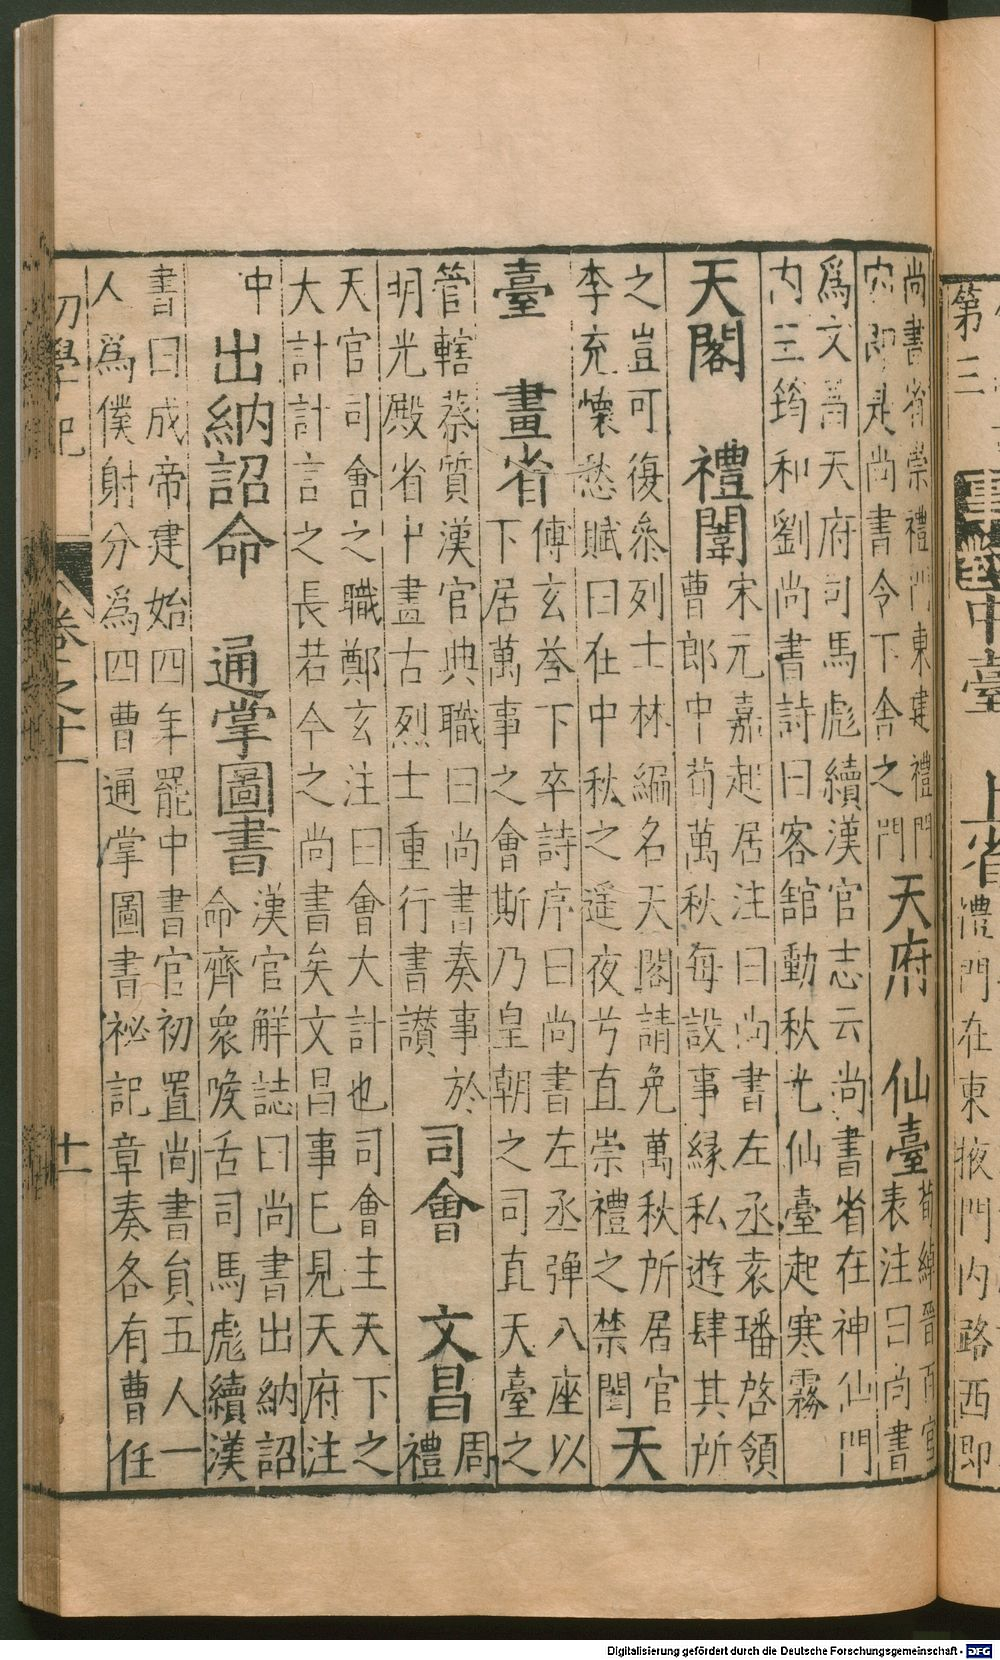 第三
事對
中臺 上省
禮門在東掖門内路西即
尚書省崇禮門東建禮門
内即是尚書令下舍之門
天府 仙臺
荀綽晉百官
表注曰尚書
爲文昌天府司馬彪續漢官志云尚書省在神仙門
内王筠和劉尚書詩曰客舘動秋光仙臺起寒霧
天閣 禮闈
宋元嘉起居注曰尚書左丞袁璠啓領
曹郎中荀萬秋每設事縁私遊肆其所
之豈可復叅列士林編名天閣請免萬秋所居官
李充懷愁賦曰在中秋之遥夜兮直崇禮之禁闈
天
臺 畫省
傅玄荅下卒詩序曰尚書左丞彈八座以
下居萬事之會斯乃皇朝之司直天臺之
管轄蔡質漢官典職曰尚書奏事於
明光殿省中畫古烈士重行書讃
司會 文昌
周
禮
天官司會之職鄭玄注曰會大計也司會主天下之
大計計言之長若今之尚書矣文昌事已見天府注
中
出納詔命 通掌圖書
漢官解誌曰尚書出納詔
命齊衆喉舌司馬彪續漢
書曰成帝建始四年罷中書官初置尚書員五人一
人爲僕射分爲四曹通掌圖書祕記章奏各有曹任
初學記
卷之十一
十一
Digitalisierung gefördert durch die Deutsche Forschungsgemeinschaft - DFG